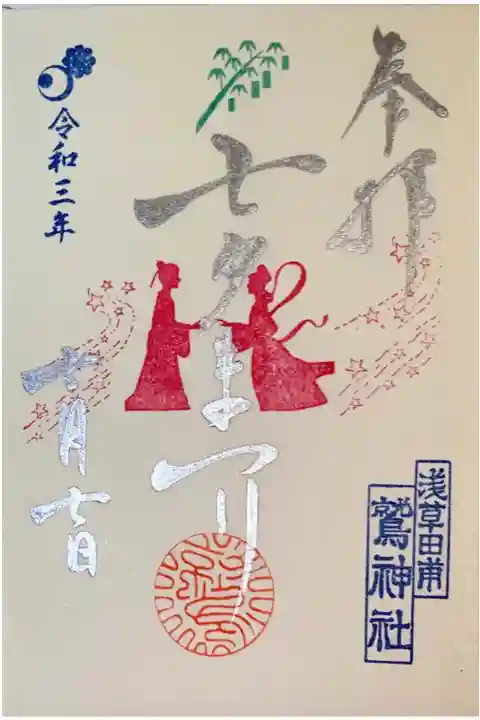 奉拝
浅草田甫
鷲神社
七夕まつり
令和三年
七月七日